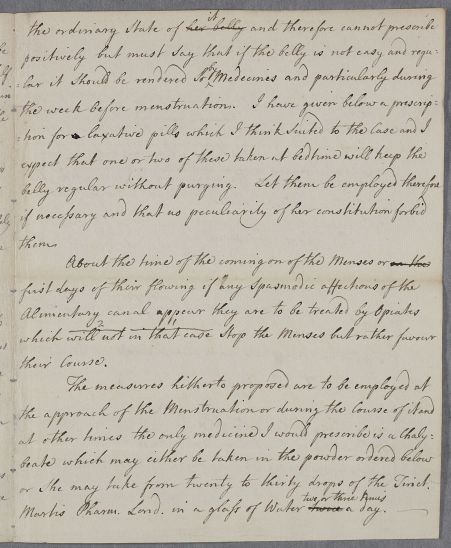 the ordinary State of her belly it and therefore cannot prescribe
positively but must say that if the belly is not easy and regu-
lar it should be rendered so by Medecines and particularly during
the week before menstruation. I have given below a prescrip-
-tion for a laxative pills which I think suited to the Case and I
expect that one or two of these taken at bedtime will keep the
belly regular without purging. Let them be employed therefore
if necessary and that no peculiarity of her constitution forbid
them.
About the time of the coming on of the Menses or on the
first days of their flowing if any Spasmodic affections of the
Alimentary canal appear they are to be treated by Opiates
which will not in that case stop the Menses but rather favour
their Course.
The measures hitherto proposed are to be employed at
the approach of the Menstruation or during the Course of it and
at other times the only medicine I would prescribe is a Chaly-
beate which may either be taken in the powder ordered below
or She may take from twenty to thirty drops of the Tinct.
Martis Pharm. Lond. in a glass of Water twice two or three times a day.